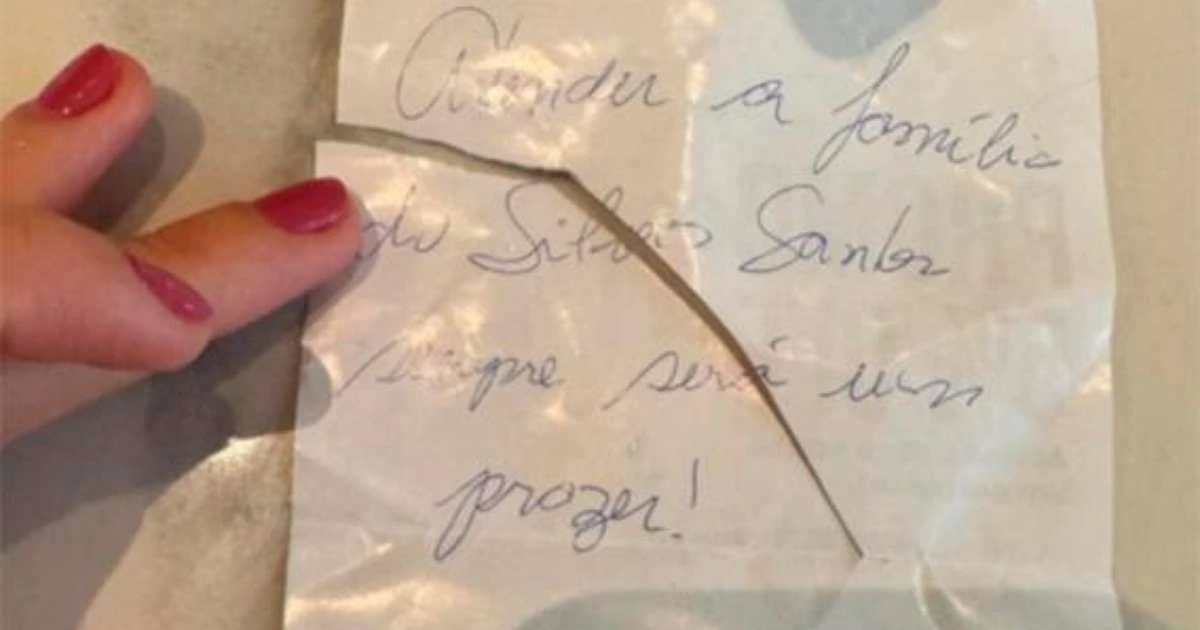 Atender a família
do Silvio Santos
sempre será um
prazer!